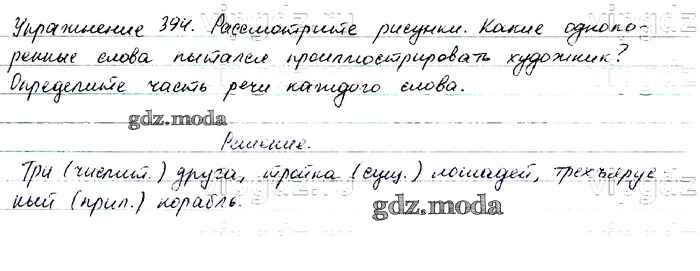 Упражнение 394. Рассмотрите рисунки. Какие одноко-
ренные слова пытался проиллюстрировать художник?
Определите часть речи каждого слова.
gdz.moda
Решение.
Три (числит.) друга, тройка (сущ.) лошадей, трехъярус-
ный (прил.) корабль.
gdz.moda